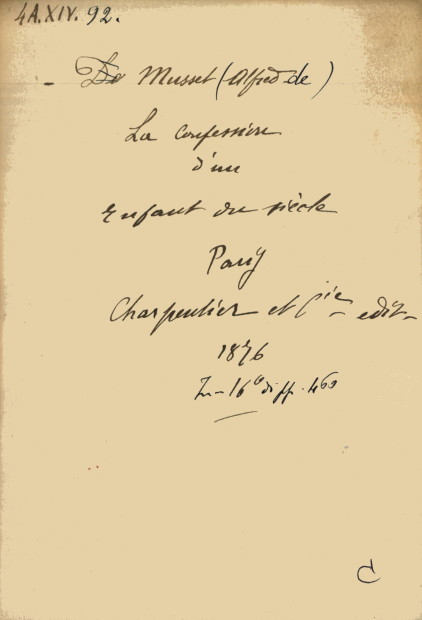 4A.XIV. 92.
De Musset (Alfred de)
La Confession
d'un
Enfant du siècle
Paris
Charpentier et Cie edit
1876
In-16° di pp. 400
C